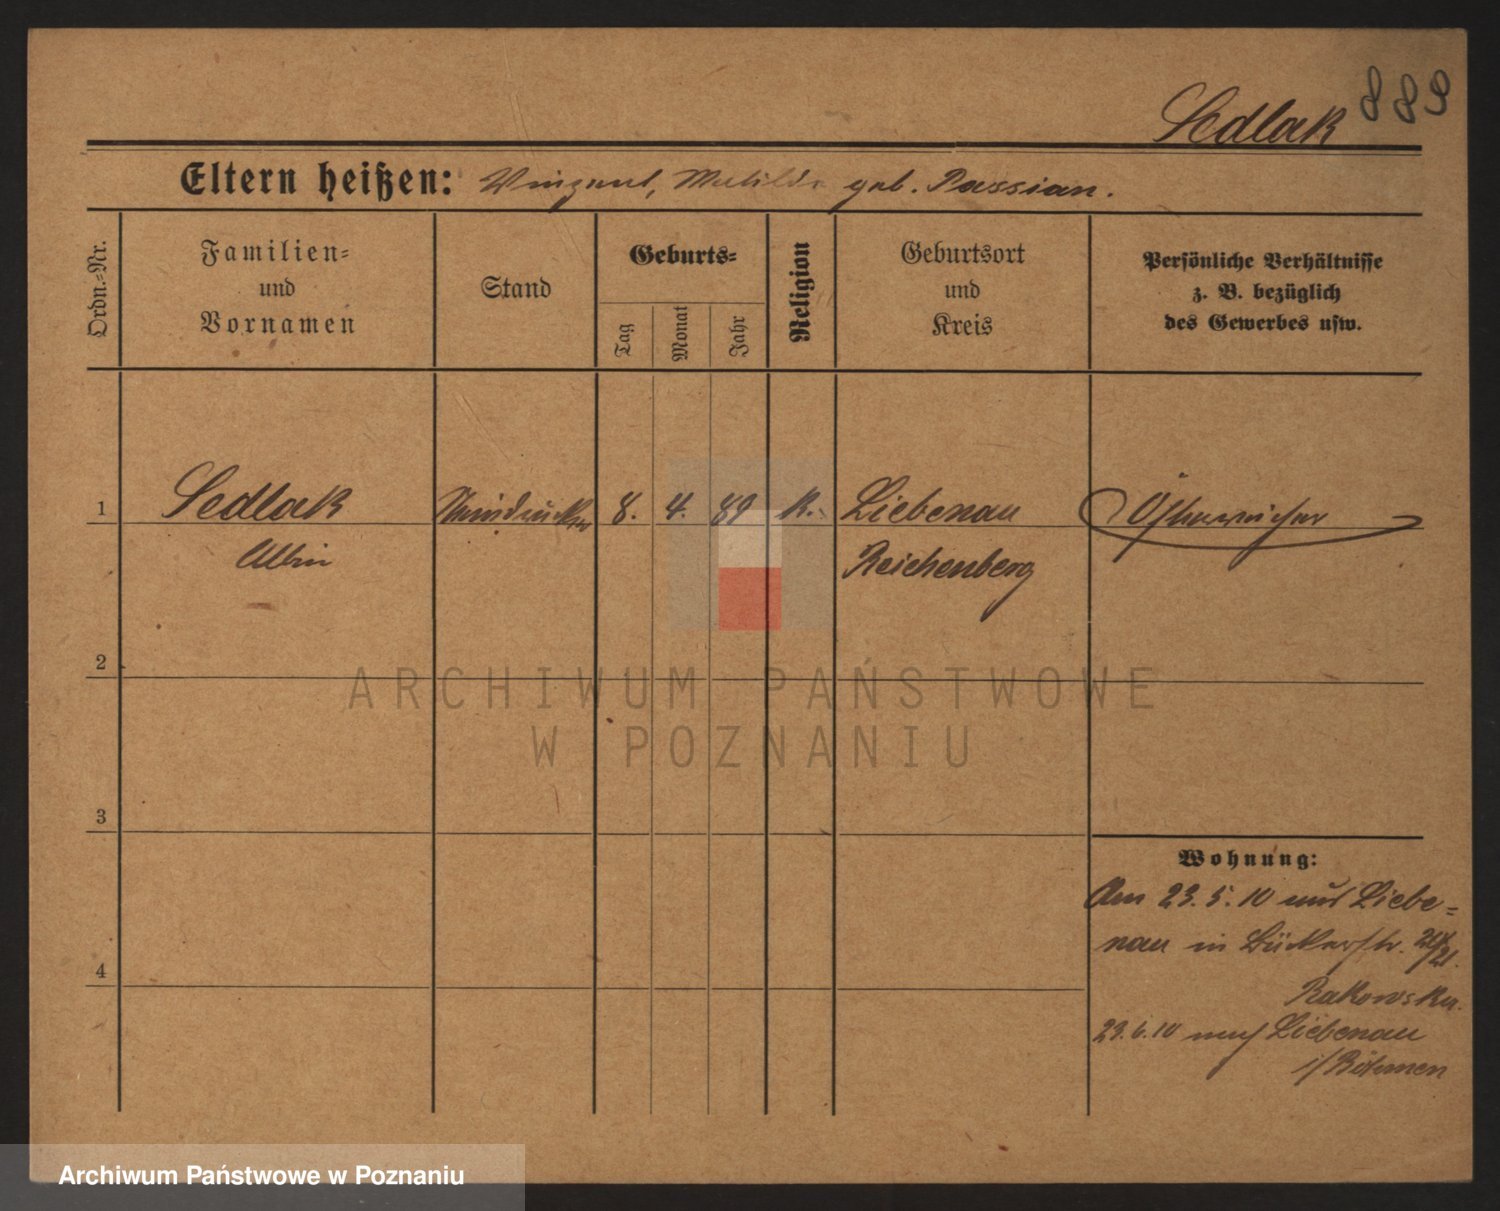 Sedlak 889
Eltern heißen: Vinzent, Matilde geb. Passian.
Ordn.-Nr.
Familien- und Vornamen
Stand
Geburts-
Tag
Monat
Jahr
Religion
Geburtsort und Kreis
Persönliche Verhältnisse z. B. bezüglich des Gewerbes usw.
1 Sedlak Steindrucker 8. 4. 89 k. Liebenau Österreicher
Albin Reichenberg
2
3
4
Wohnung:
Am 23.5.10 aus Liebe=
nau in Bäckerstr. /21.
Rakowska.
23.6.10 nach Liebenau
i/Böhmen
ARCHIWUM PAŃSTWOWE
W POZNANIU
Archiwum Państwowe w Poznaniu